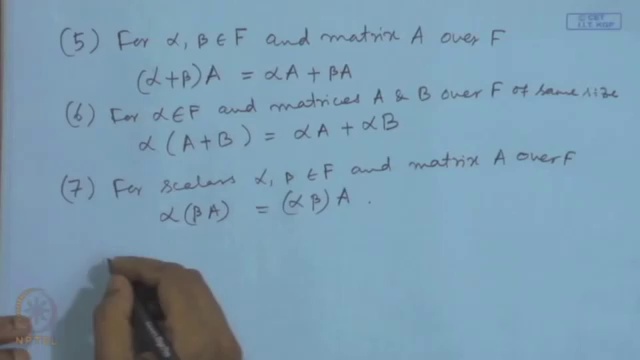 © CET
I.I.T. KGP
(5) For α, β ∈ F and matrix A over F
(α+β)A = αA + βA
(6) For α ∈ F and matrices A & B over F of same size
α(A+B) = αA + αB
(7) For scalars α, β ∈ F and matrix A over F
α(βA) = (αβ)A.
NPTEL